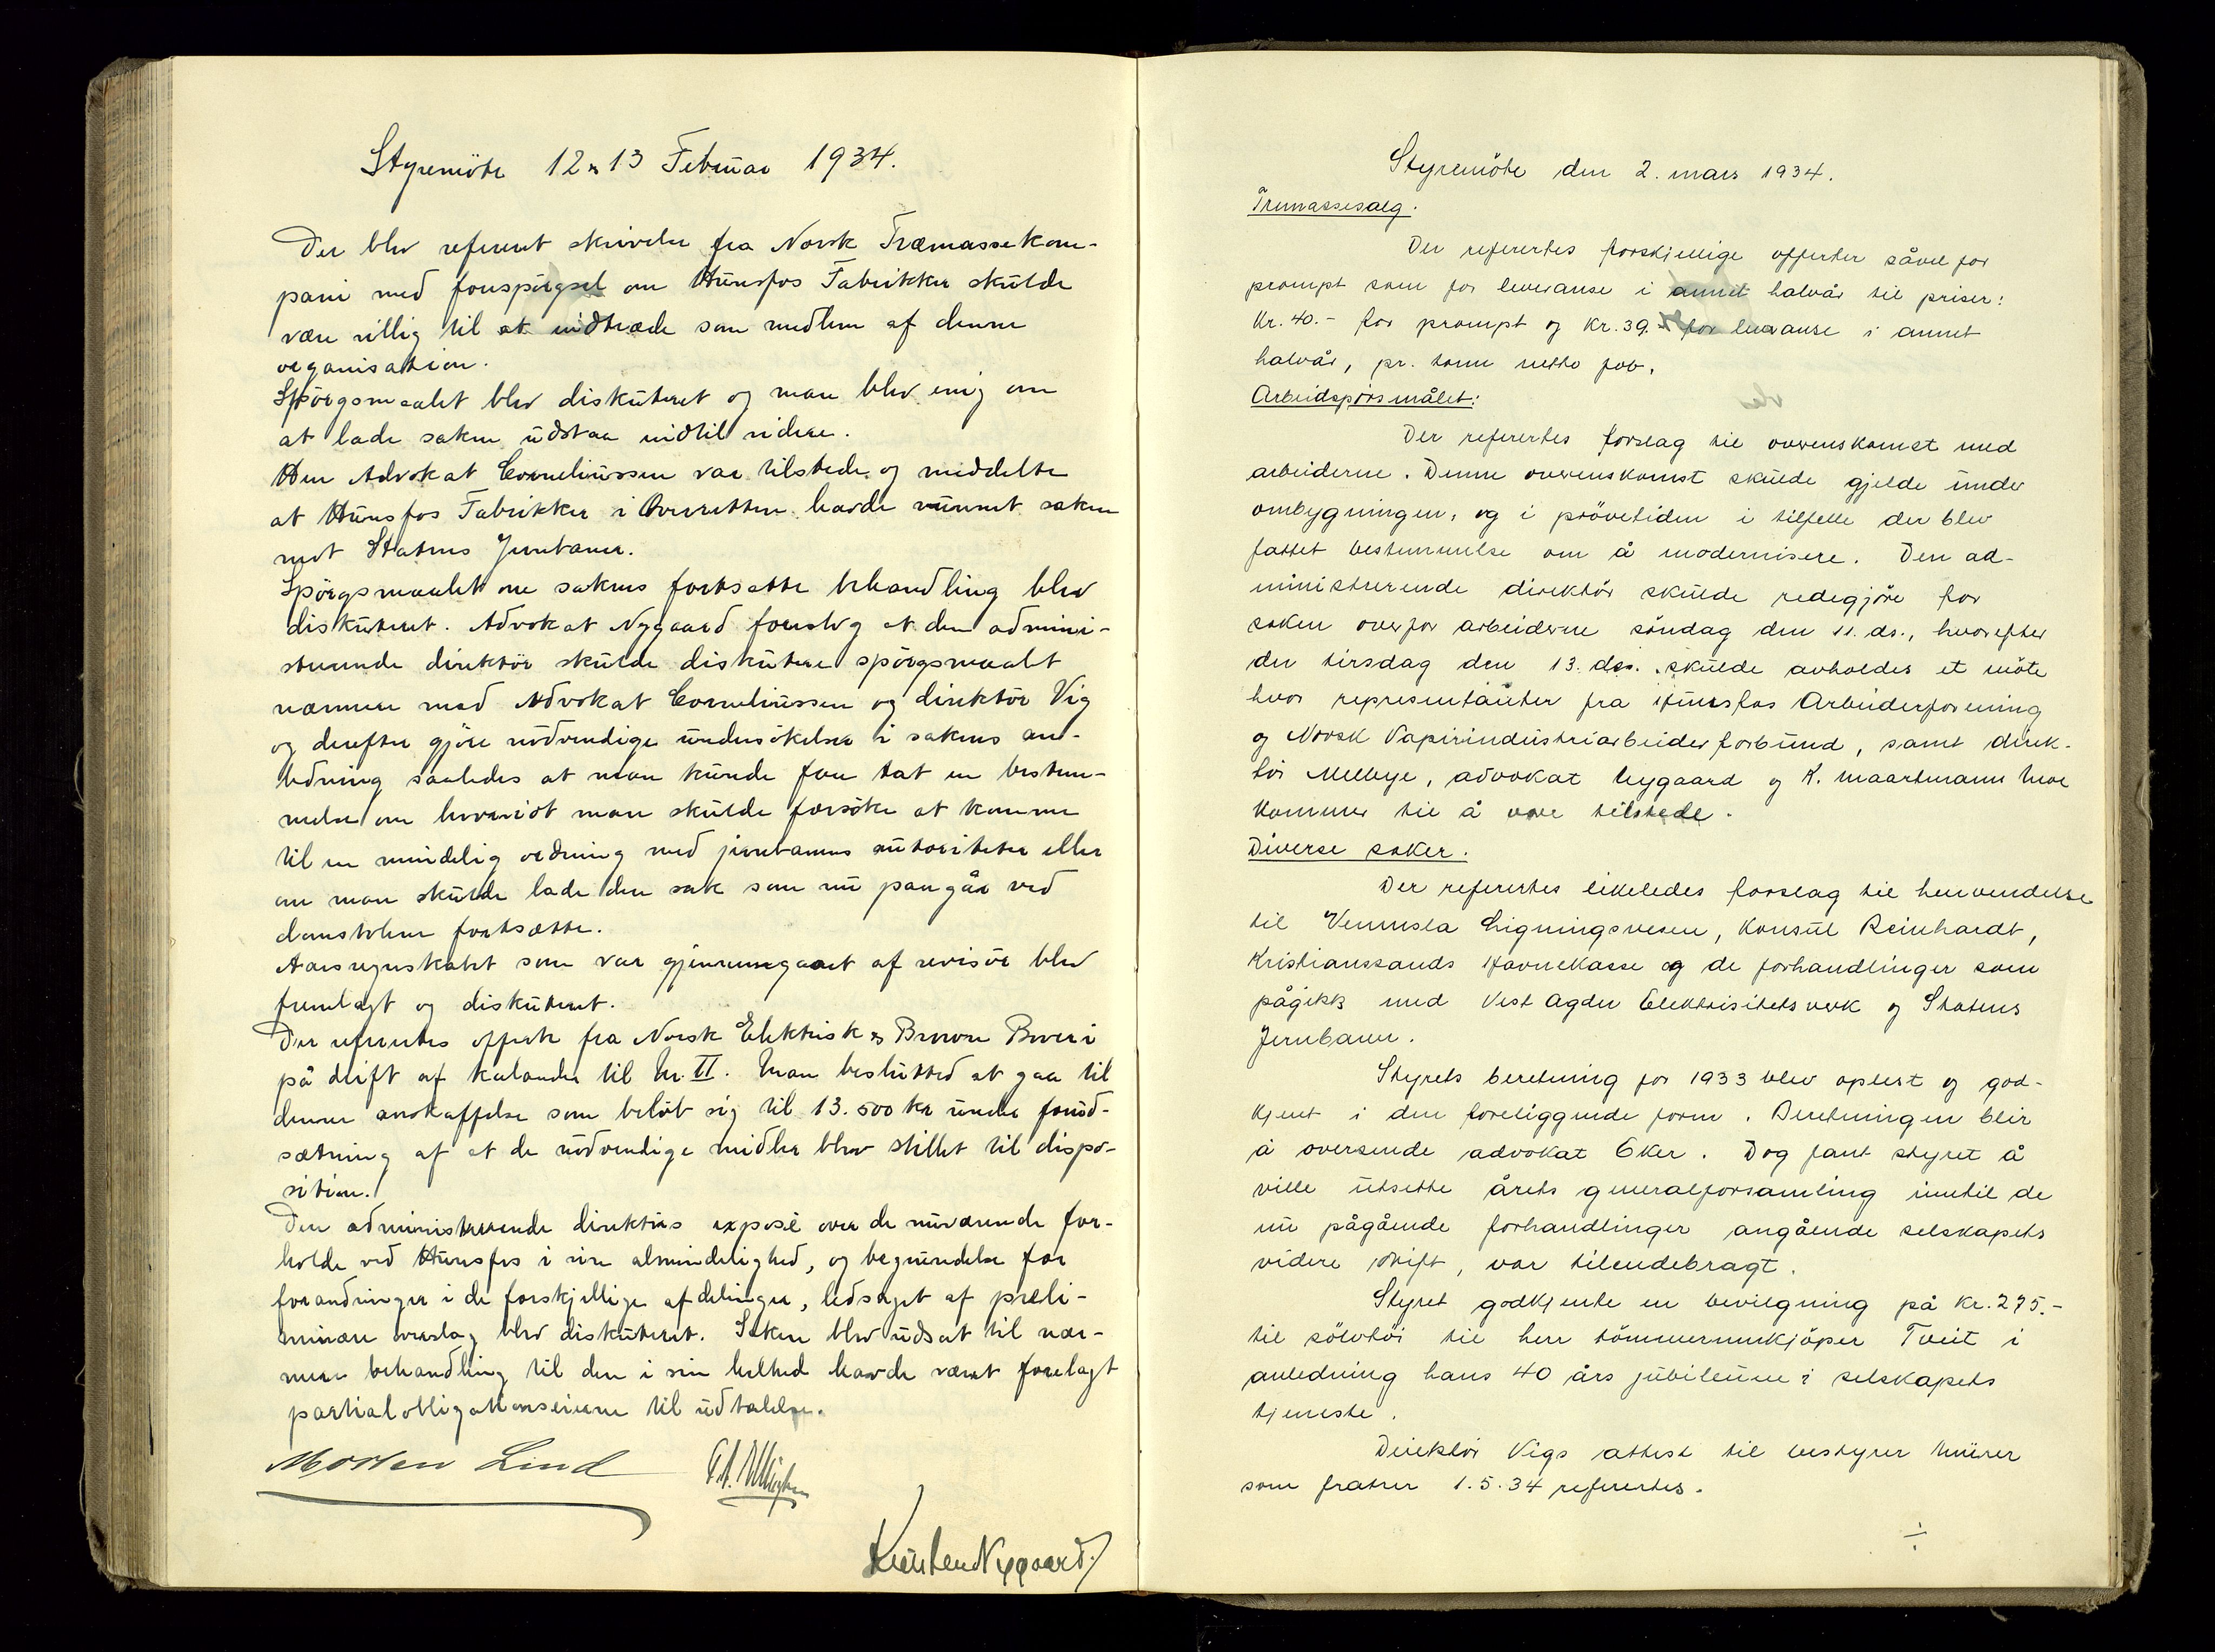 Styremöte 12 & 13 Februar 1934.
Der blev referert skrivelse fra Norsk Træmassekom-
pani med forespörgsel om Hunsfos Fabrikker skulde
være villig til at indtræde som medlem af denne
organisation.
Spörgsmaalet blev diskuteret og man blev enig om
at lade saken udstaa indtil videre.
Herr Advokat Corneliussen var tilstede og meddelte
at Hunsfos Fabrikker i Overretten havde vunnet saken
mot Statens Jernbaner.
Spörgsmaalet om sakens fortsatte behandling blev
diskuteret. Advokat Nygaard foreslog at den admini-
strerende direktör skulde diskutere spörgsmaalet
nærmere med Advokat Corneliussen og direktör Vig
og derefter gjöre nödvendige undersökelser i sakens an-
ledning saaledes at man kunde faa tat en bestem-
melse om hvorvidt man skulde forsöke at komme
til en mindelig ordning med jernbanens autoriteter eller
om man skulde lade den sak som nu paagår ved
domstolene fortsætte.
Aarsregnskabet som var gjennemgaaet af revisor blev
fremlagt og diskuteret.
Der refereertes offerte fra Norsk Elektrisk & Brown Boveri
på drift af kalander til Nr. II. Man beslutted at gaa til
denne anskaffelse som belöb sig til 13.500 kr under forud-
sætning af at de nödvendige midler blev stillet til dispo-
sition.
Den administrerende direktörs exposé over de nuværende for-
holde ved Hunsfos i sin almindelighed, og begrundelse for
forandringer i de forskjellige afdelinger, ledsaget af præli-
minære overslag blev diskuteret. Saken blev udsat til nær-
mere behandling til den i sin helhed havde været forelagt
partialobligationseierne til udtalelse.
Morten Lind
Kirsten Nygaard.
Styremöte den 2. mars 1934.
Tremassesalg.
Der refererte forskjellige offerter såvel for
prompt som for leveranse i annet halvår til priser:
Kr. 40.- for prompt og Kr. 39.- for leveranse i annet
halvår, pr. tonn netto fob.
Arbeidsporsmålet:
Der refererte forslag til overenskomst med
arbeiderne. Denne overenskomst skulde gjelde under
ombygningen, og i prövetiden i tilfelle der blev
fattet bestemmelse om å modernisere. Den ad-
ministrerende direktör skulde redegjöre for
saken overfor arbeiderne söndag den 11. ds., hvorefter
der tirsdag den 13. ds. skulde avholdes et möte
hvor representanter fra Hunsfos Arbeiderforening
og Norsk Papirindustriarbeiderforbund, samt direk-
tör Mellbye, advokat Nygaard og K. Maartmann Moe
kommer til å være tilstede.
Diverse saker.
Der refererte likeledes forslag til henvendelse
til Vennesla Ligningsvesen, Konsul Reinhardt,
Kristianssands Havnekasse og de forhandlinger som
pågikk med Vest Agder Elektrisitetsverk og Statens
Jernbaner.
Styrets beretning for 1933 blev oplest og god-
kjent i den foreliggende form. Beretningen blir
å oversende advokat Eker. Dog fant styret å
ville utsette årets generalforsamling inntil de
nu pågående forhandlinger angående selskapets
videre drift, var tilendebragt.
Styret godkjente en bevilgning på Kr. 275.-
til sölvtöi til herr tömmerinnkjöper Tveit i
anledning hans 40 års jubileum i selskapets
tjeneste.
Direktör Vigs attest til bestyrer Mürer
som fratrer 1.5.34 refererte.
÷